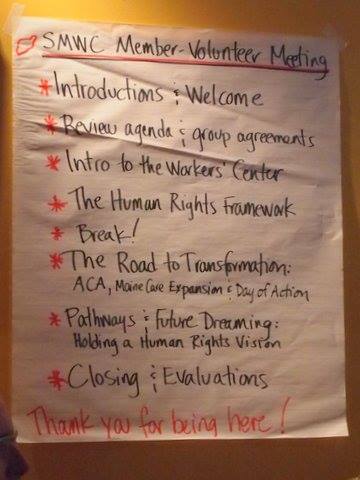 SMWC Member-Volunteer Meeting
* Introductions & Welcome
* Review agenda & group agreements
* Intro to the Workers' Center
* The Human Rights Framework
* Break!
* The Road to Transformation:
ACA, Maine Care Expansion & Day of Action
* Pathways & Future Dreaming:
Holding a Human Rights Vision
* Closing & Evaluations
Thank you for being here!